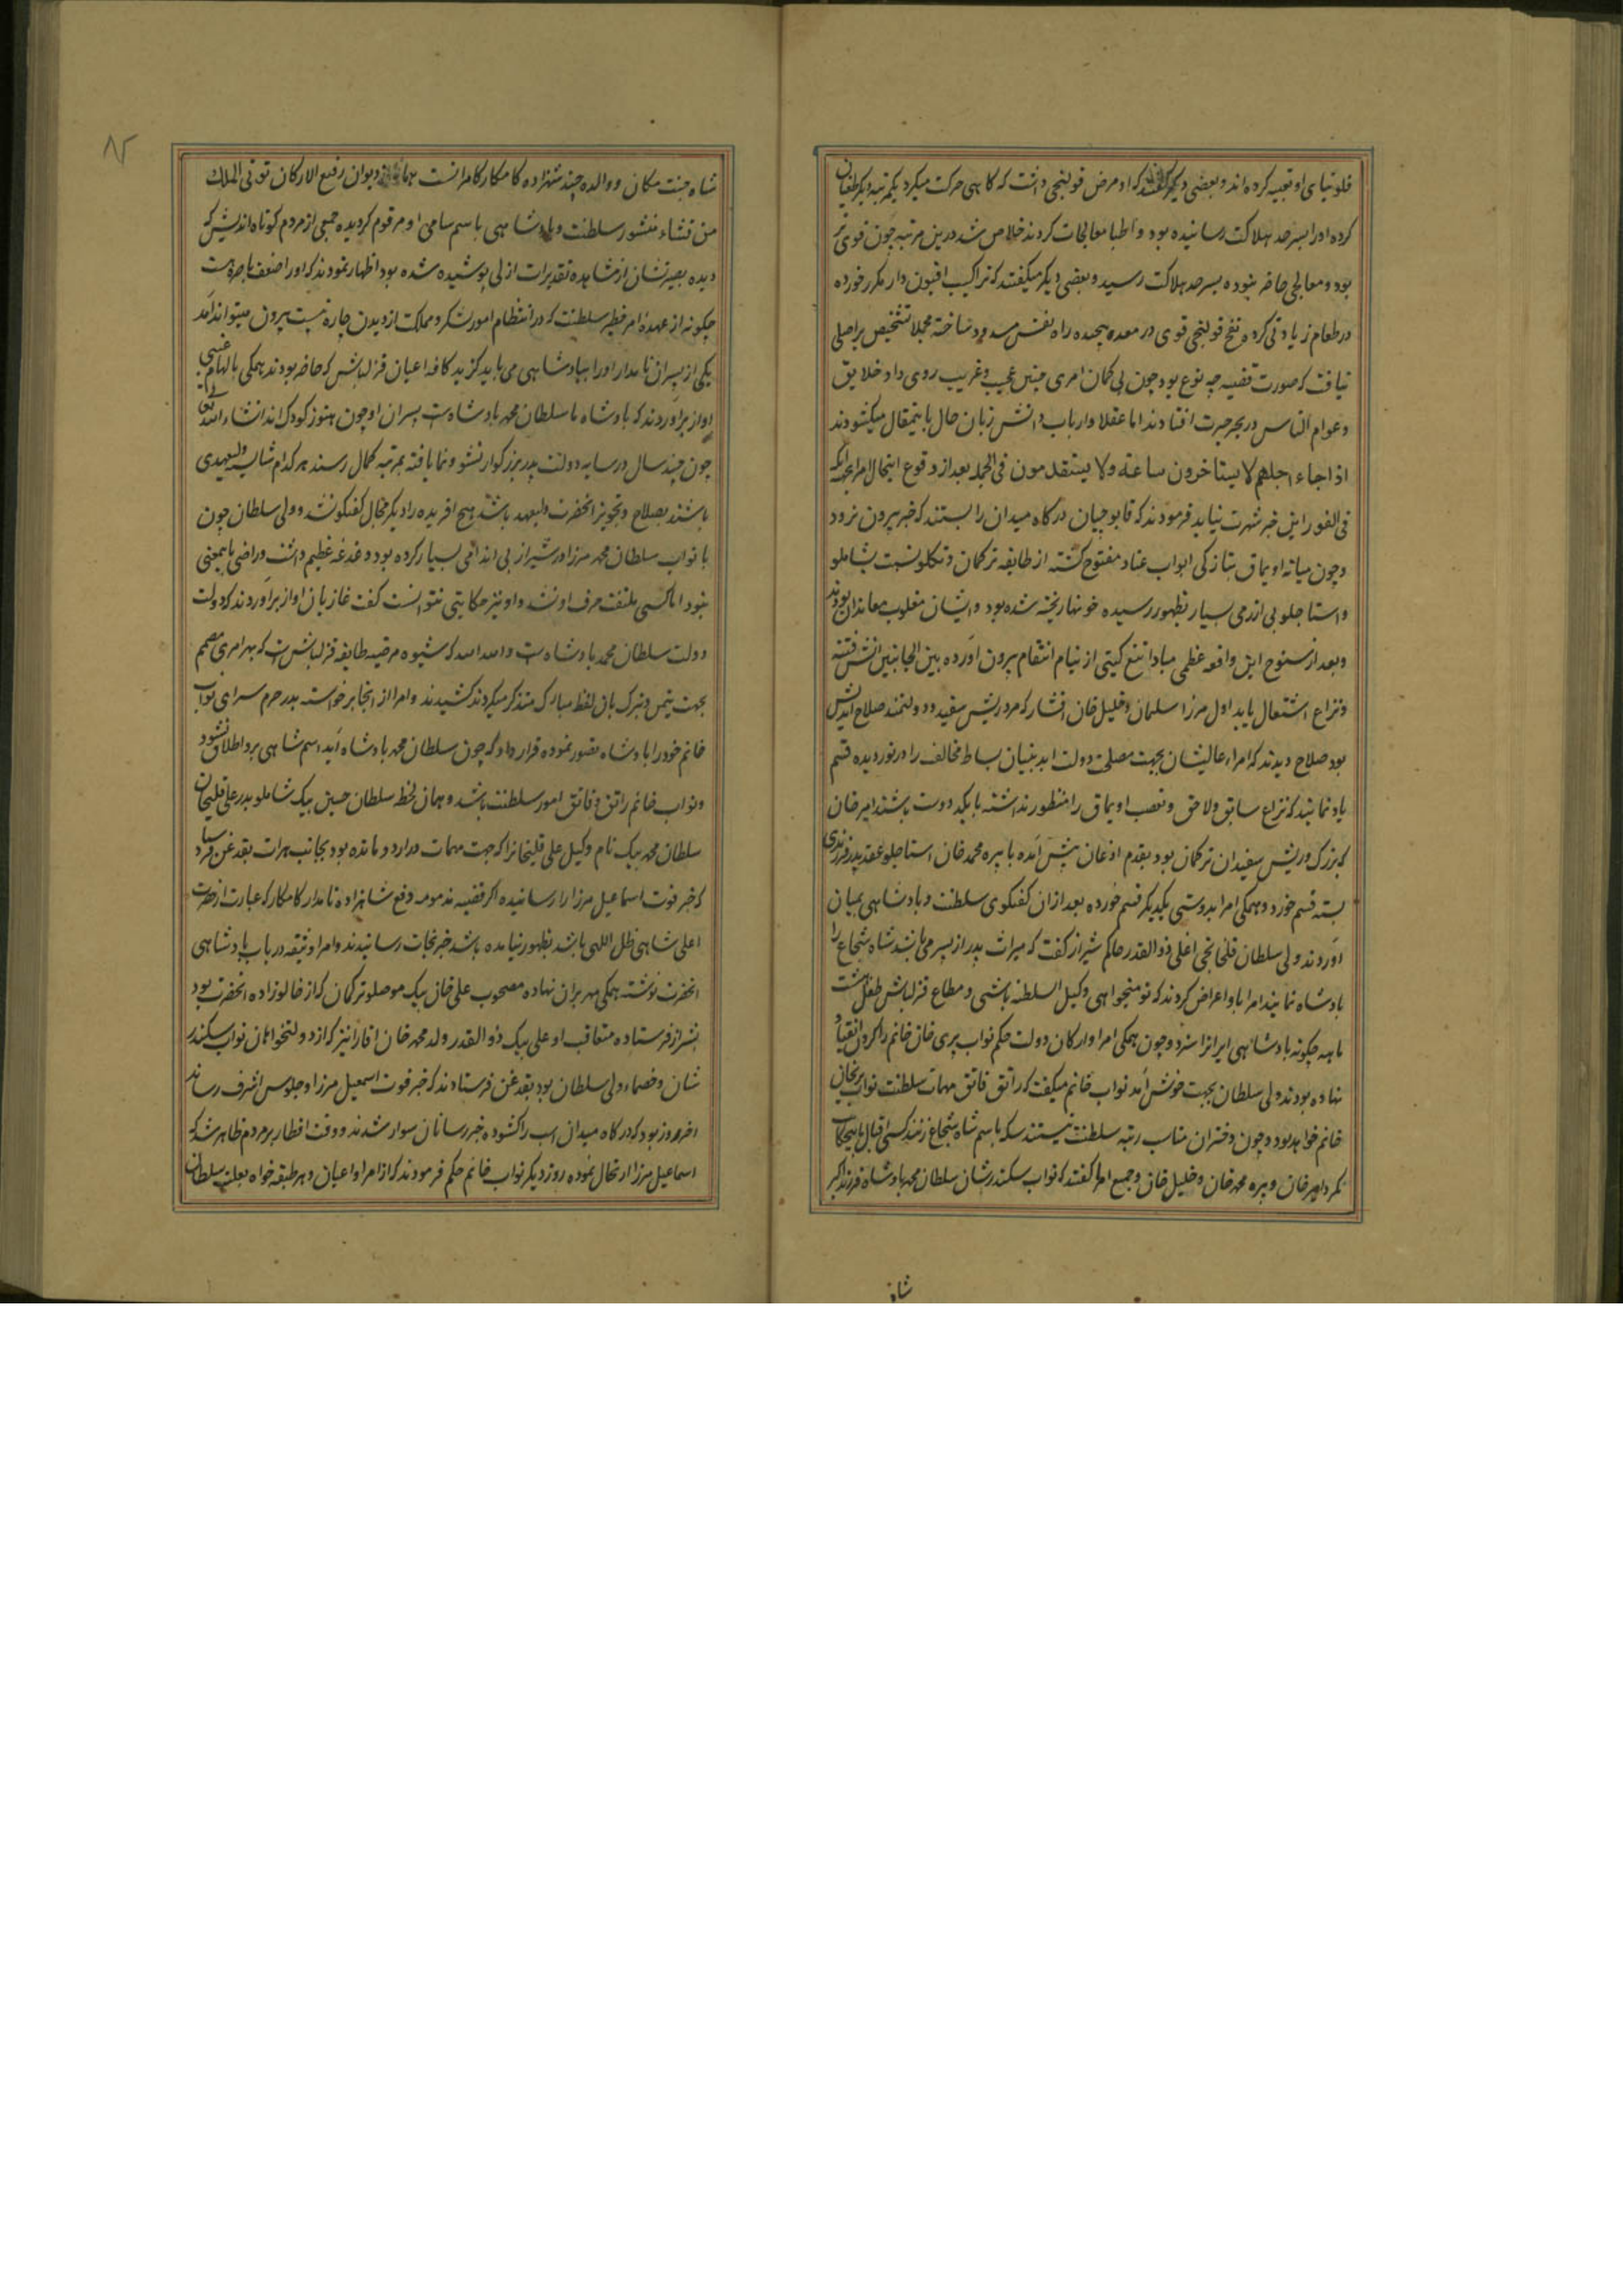 قلونیای او تعبیه کرده‌اند و بعضی دیگر گفتند که او مرض قولنجی داشت که گاهی حرکت میکرد یکمرتبه دیگر طغیان
کرده او را بسرحد هلاکت رسانیده بود و اطبا معالجات کردند خلاص شد درین مرتبه چون قوی‌تر
بود و معالجی حاضر نبوده بسرحد هلاکت رسید و بعضی دیگر میگفتند که تراکیب افیون دار مکرر خورده
در طعام زیادتی کرده نفخ قولنجی قوی در معده پیچیده راه نفس مسدود ساخته مجملا تشخیص بر اصلی
نیافت که صورت قضیه چه نوع بود چون بی کمان امری چنین عجیب و غریب روی داد خلایق
و عوام الناس در بحر حیرت افتادند اما عقلا و ارباب دانش زبان حال باینمقال میکشودند
اذا جاء اجلهم لا یستاخرون ساعة ولا یستقدمون فی الجمله بعد از وقوع اینحال امرا بجهه آنکه
فی الفور این خبر شهرت نیابد فرمودند که قابوچیان درگاه میدان را بستند که خبر بیرون نرود
و چون میانه اویماق بتازگی ابواب عناد مفتوح گشته از طایفه ترکمان و تکلو نسبت بشاملو
و استاجلو بی ازرمی بسیار بظهور رسیده خونها ریخته شده بود و ایشان مغلوب معاندان بودند
و بعد از سنوح این واقعه عظمی مبادا تیغ کینی از نیام انتقام بیرون آورده بین الجانبین آتش فتنه
و نزاع اشتعال یابد اول میرزا سلمان و خلیل خان افشار که مرد ریش سفید و دولتمند صلاح اندیش
بود صلاح دیدند که امراء عالیشان بجهت مصلحت دولت ابد بنیان بساط مخالفت را در نوردیده قسم
یاد نمایند که نزاع سابق و لاحق و تعصب اویماق را منظور نداشته با یکدیگر دوست باشند امیر خان
که بزرگ و ریش سفیدان ترکمان بود بقدم اذعان پیش آمده با پیره محمد خان استاجلو عقد پدر فرزندی
بسته قسم خورد و همگی امرا بدوستی یکدیگر قسم خورده بعد از ان گفتگوی سلطنت و پادشاهی بمیان
آوردند ولی سلطان قلخانچی اغلی ذوالقدر حاکم شیراز گفت که میراث پدر از پسر می باشد شاه شجاع را
پادشاه نمایند امرا باو اعراض کردند که تو میخواهی وکیل السلطنه باشی و مطاع قزلباش طفل هشت
ماهه چگونه پادشاهی ایرانرا سزد و چون همگی امرا و ارکان دولت حکم نواب پری خان خانم را گردن انقیاد
نهاده بودند ولی سلطان بجهت خوش آمد نواب خانم میگفت که راتق فاتق مهمات سلطنت نواب پریخان
خانم خواهد بود و چون دختران مناسب رتبه سلطنت نیستند سکه باسم شاه شجاع زنند کسی اقبال باینحکایت
نکرد امیر خان و پیره محمد خان و خلیل خان و جمیع امرا گفتند که نواب سکندر شان سلطان محمد پادشاه فرزند اکبر
شاه
۸۲
شاه جنت مکان و والده چند شهزاده کامکار کامرانست همانا در دیوان رفیع الارکان توتی الملک
من تشاء منشور سلطنت و پادشاهی باسم سامی او مرقوم گردیده جمعی از مردم کوتاه اندیش که
دیده بصیرتشان از مشاهده تقدیرات ازلی پوشیده شده بود اظهار نمودند که او را ضعف باصره است
چگونه از عهده امر خطیر سلطنت که در انتظام امور لشکر و مملکت از دیدن چاره نیست بیرون میتواند آمد
یکی از پسران نامدار او را بپادشاهی می باید گزید کافه اعیان قزلباش که حاضر بودند همگی بالهام غیبی
اواز برآوردند که پادشاه ما سلطان محمد پادشاه است پسران او چون هنوز کودک‌اند انشاءالله تعالی
چون چند سال در سایه دولت پدر بزرگوار نشو و نما یافته بمرتبه کمال رسند هر کدام شایسته ولیعهدی
باشند بصلاح و تجویز انحضرت ولیعهد باشد هیچ افریده را دیگر مجال گفتگو نشد و ولی سلطان چون
با نواب سلطان محمد میرزا در شیراز بی اندامی بسیار کرده بود دغدغه عظیم داشت و راضی باینمعنی
نبود اما کسی ملتفت حرف او نشد و او نیز حکایتی نتوانست گفت غازیان اواز برآوردند که دولت
دولت سلطان محمد پادشاه است و الله الله که شیوه مرضیه طایفه قزلباش است که بهر امری مصمم
بجهت تیمن و تبرک بان لفظ مبارک متذکر میگردند کشیدند و امرا از انجا برخواسته بدر حرم سرای نواب
خانم خود را پادشاه تصور نموده قرار داد که چون سلطان محمد پادشاه آید اسم شاهی برو اطلاق شود
و نواب خانم راتق و فاتق امور سلطنت باشد و همان لحظه سلطان حسین بیک شاملو پدر علیقلیخان
سلطان محمد بیک نام وکیل علی قلیخانرا که جهت مهمات در اردو مانده بود بجانب هرات بقدغن فرستاد
که خبر فوت اسماعیل میرزا را رسانیده اگر قضیه مذمومه دفع شاهزاده نامدار کامکار که عبارت از حضرت
اعلی شاهی ظل اللهی باشد بظهور نیامده باشد خبر نجات رسانیدند و امرا وثیقه در باب پادشاهی
انحضرت نوشته همگی مهر بران نهاده مصحوب علی خان بیک موصلو ترکمان که از خالوزاده انحضرت بود
بشیراز فرستاده متعاقب او علی بیک ذوالقدر ولد محمد خان افارا نیز که از دولتخواهان نواب سکندر
شان و خصماء ولی سلطان بود بقدغن فرستادند که خبر فوت اسمعیل میرزا و جلوس اشرف رساند
اخر روز بود که درگاه میدان اسب را گشوده خبر رسانان سوار شدند و وقت افطار بر مردم ظاهر شد که
اسماعیل میرزا ارتحال نموده روز دیگر نواب خانم حکم فرمودند که از امرا و اعیان و هر طبقه خواه بعلت سلطان